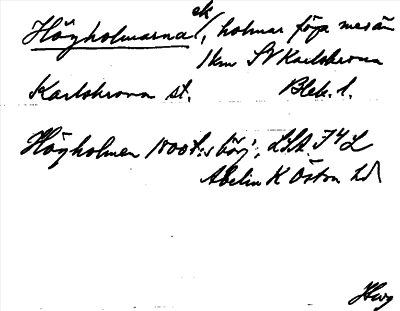 Högholmarna ek/, holmar föga mer än
1 km SV Karlskrona
Karlskrona st. Blek. l.
Högholmen 1800 t:s börj, LSA J4L
Abelin K Östra Ld
Hwg